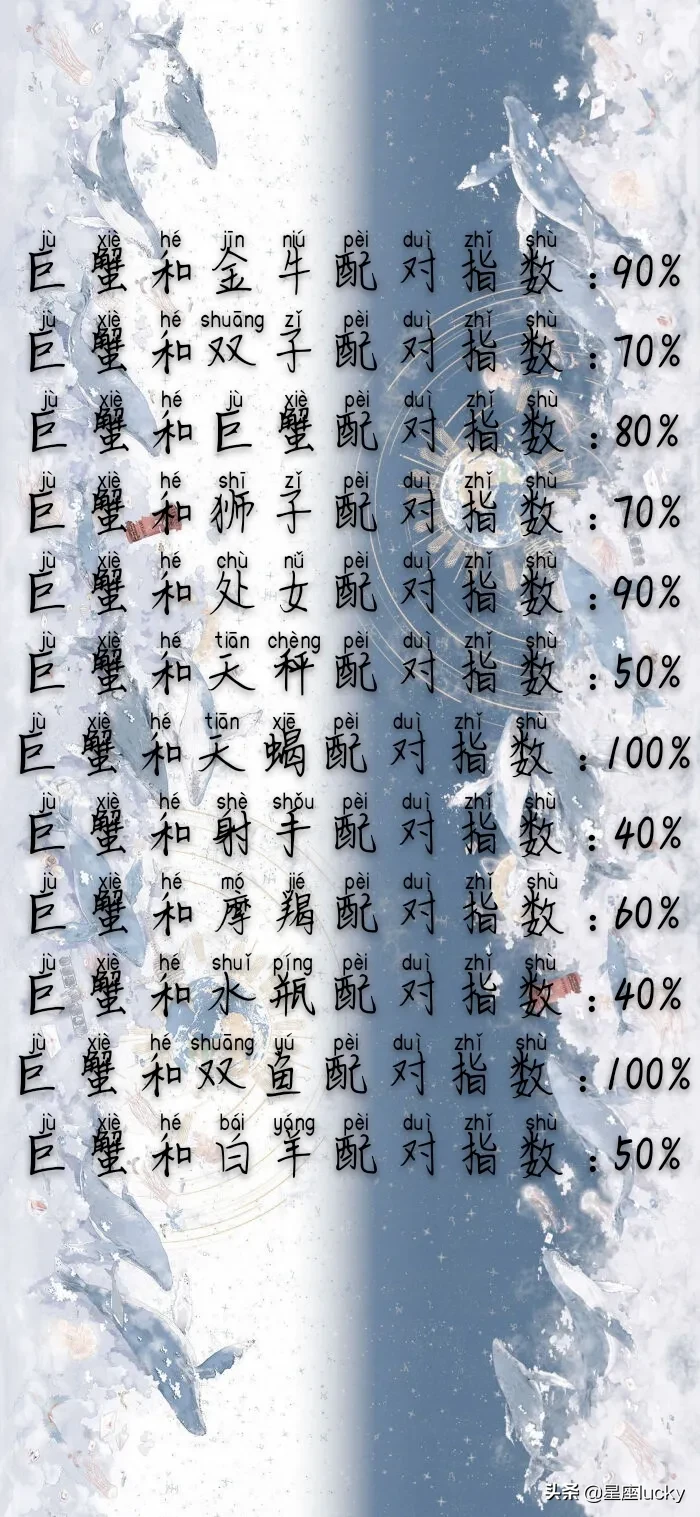 jù xiè hé jīn niú pèi duì zhǐ shù
巨蟹和金牛配对指数：90%
jù xiè hé shuāng zǐ pèi duì zhǐ shù
巨蟹和双子配对指数：70%
jù xiè hé jù xiè pèi duì zhǐ shù
巨蟹和巨蟹配对指数：80%
jù xiè hé shī zǐ pèi duì zhǐ shù
巨蟹和狮子配对指数：70%
jù xiè hé chù nǚ pèi duì zhǐ shù
巨蟹和处女配对指数：90%
jù xiè hé tiān chèng pèi duì zhǐ shù
巨蟹和天秤配对指数：50%
jù xiè hé tiān xiē pèi duì zhǐ shù
巨蟹和天蝎配对指数：100%
jù xiè hé shè shǒu pèi duì zhǐ shù
巨蟹和射手配对指数：40%
jù xiè hé mó jié pèi duì zhǐ shù
巨蟹和摩羯配对指数：60%
jù xiè hé shuǐ píng pèi duì zhǐ shù
巨蟹和水瓶配对指数：40%
jù xiè hé shuāng yú pèi duì zhǐ shù
巨蟹和双鱼配对指数：100%
jù xiè hé bái yáng pèi duì zhǐ shù
巨蟹和白羊配对指数：50%
头条 @星座lucky